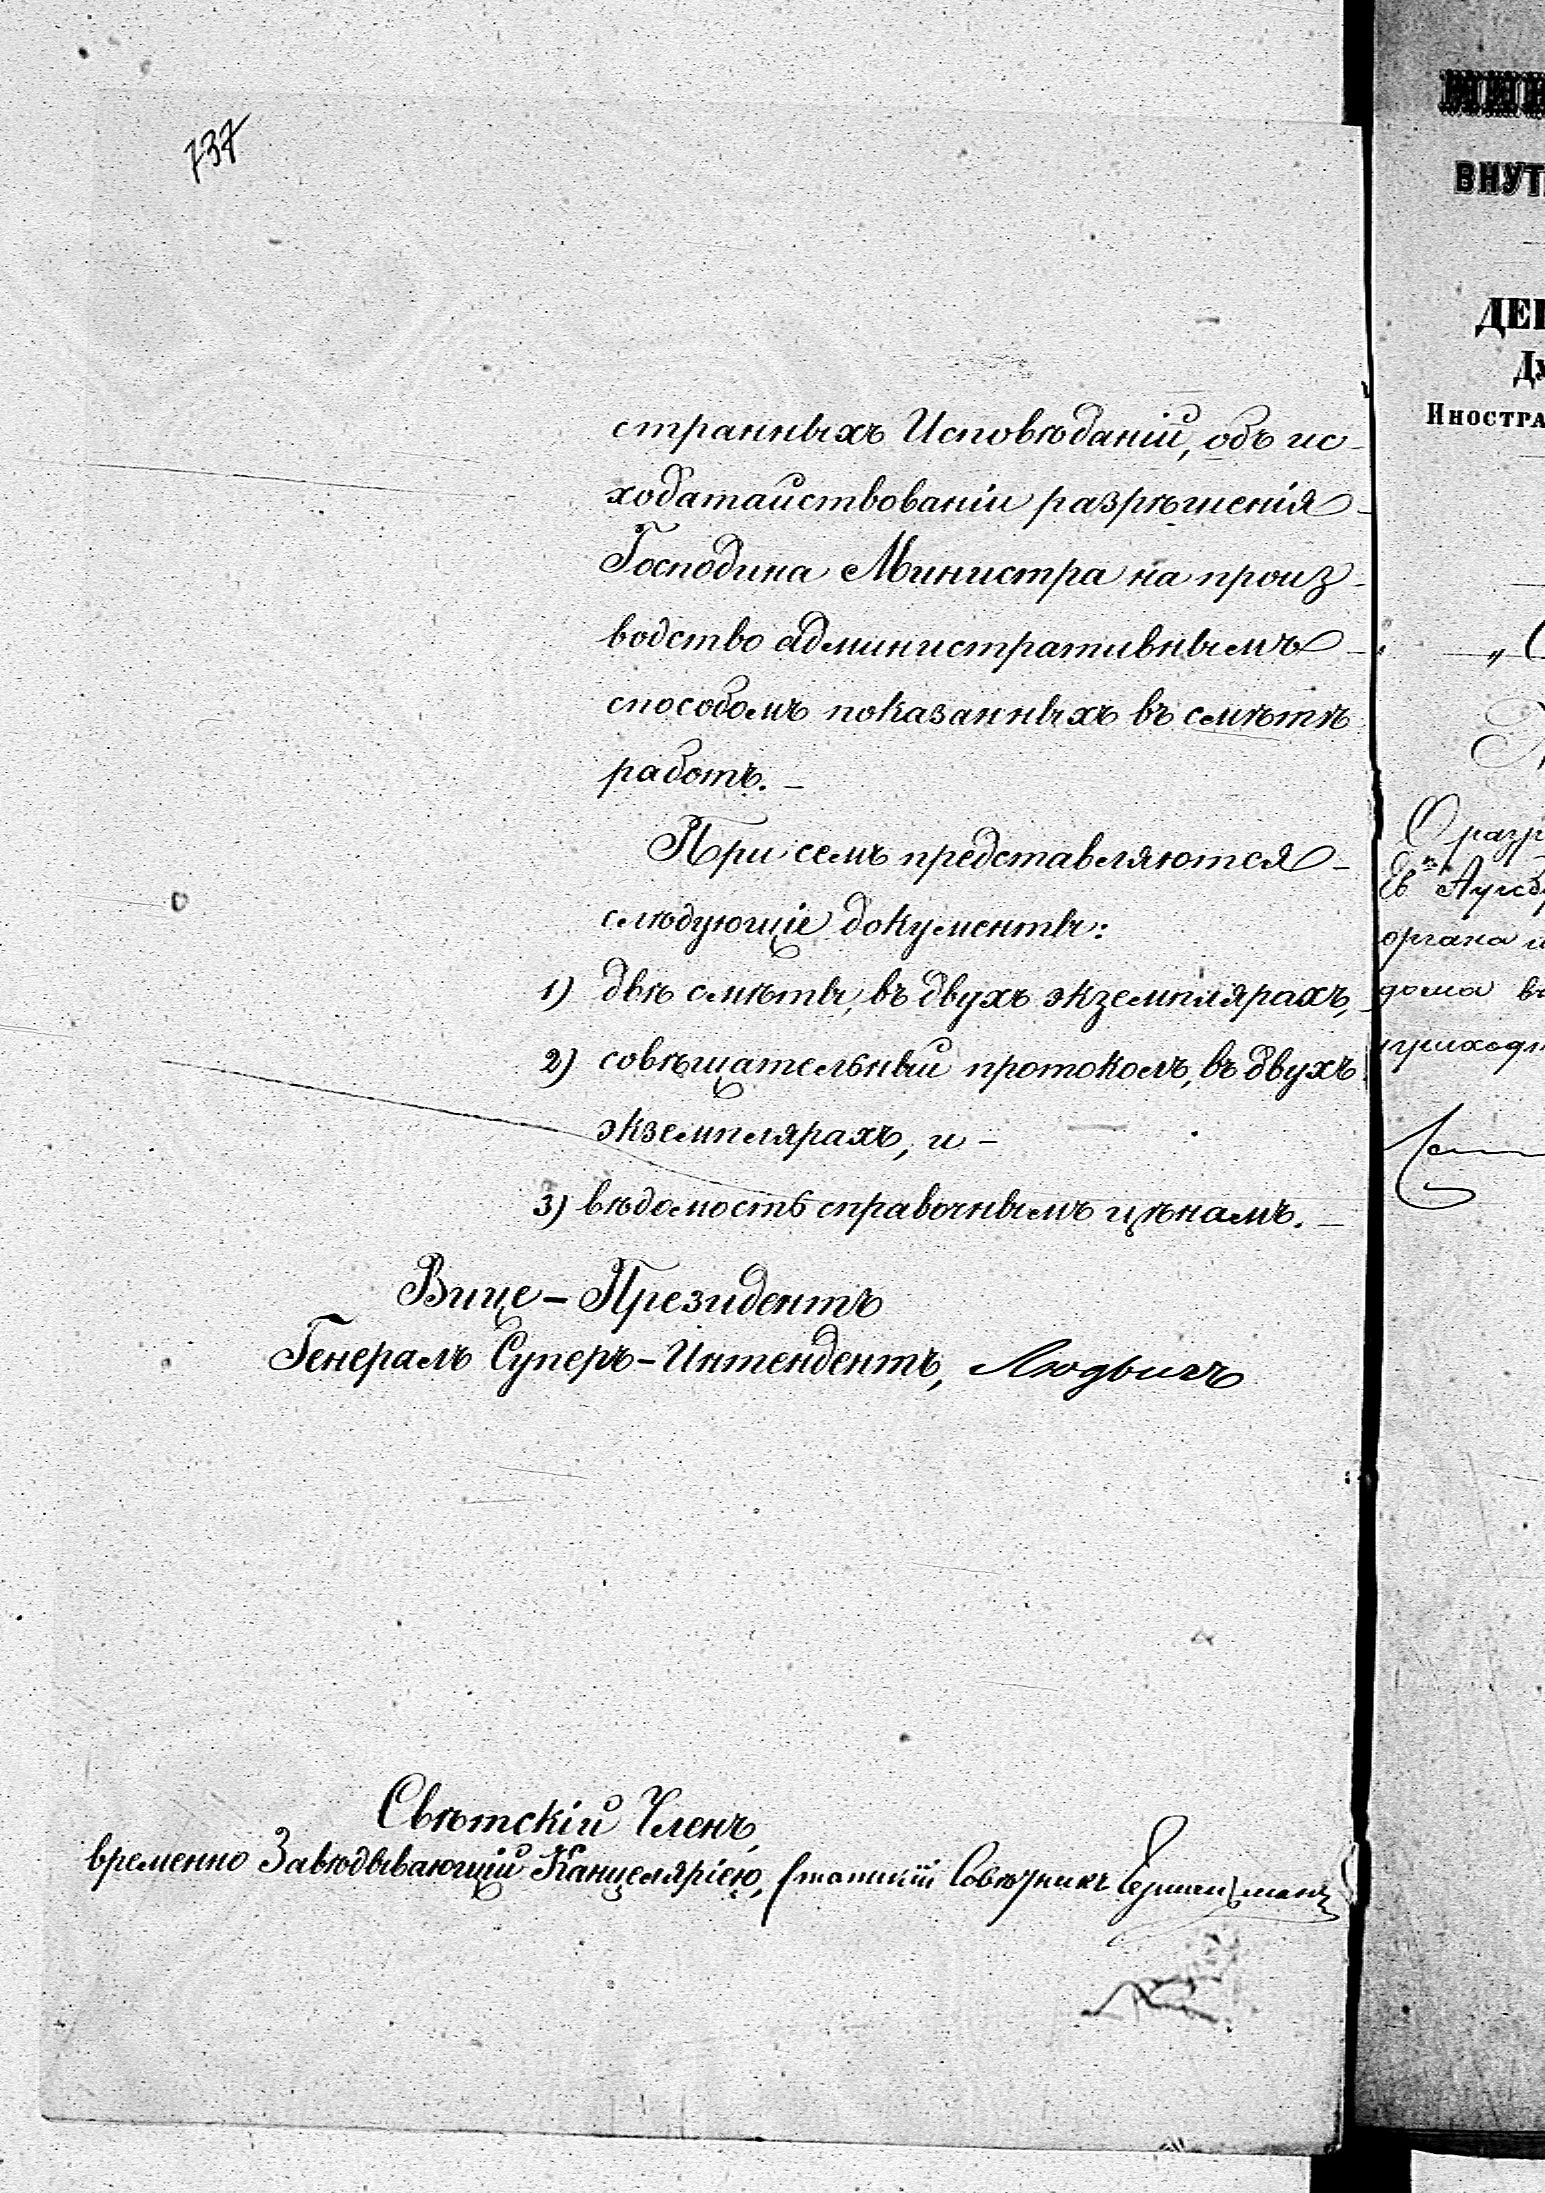 737
странныхъ Исповѣданій, объ ис-
ходатайствованіи разрѣшенія
Господина Министра на произ-
водство административнымъ
способомъ показанныхъ въ смѣтѣ
работъ. —
При семъ представляются
слѣдующіе документы:
1) двѣ смѣты, въ двухъ экземплярахъ,
2) совѣщательный протоколъ, въ двухъ
экземплярахъ, и —
3) вѣдомость справочнымъ цѣнамъ. —
Вице-Президентъ
Генералъ Суперъ-Интендентъ, Людвигъ
Свѣтскій Членъ,
временно Завѣдывающій Канцеляріею, Статскій Совѣтникъ
ВНУТ
ДЕП
Ду
Иностра
О разр
Ев. Аугсб
органа и
дома въ